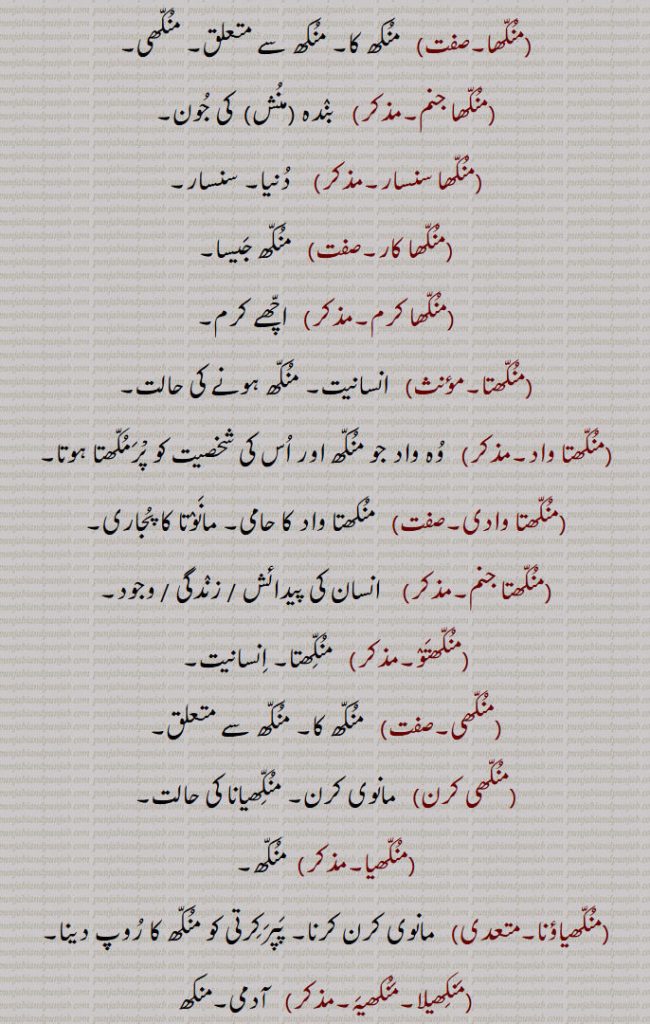 (مَنُکّھا۔صفت) مَنُکھ کا۔ مَنُکھ سے متعلق۔ مَنُکّھی۔
(مَنُکّھا جنم۔مذکر) بنْدہ (منُش) کی جُون۔
(مَنُکّھا سنسار۔مذکر) دُنیا۔ سنسار۔
(مَنُکّھا کار۔صفت) مَنُکّھ جَیسا۔
(مَنُکّھا کرم۔مذکر) اچّھے کرم۔
(مَنُکّھتا۔مؤنث) انسانیت۔ مَنُکّھ ہونے کی حالت۔
(مَنُکّھتا واد۔مذکر) وُہ واد جو مَنُکّھ اور اُس کی شخصیت کو پْرَمُکّھتا ہوتا۔
(مَنُکّھتا وادی۔صفت) مَنُکھتا واد کا حامی۔ مانَوْتا کا پُجاری۔
(مَنُکّھتا جنم۔مذکر) انسان کی پیدائش / زنْدگی / وجود۔
(مَنُکّھتَوْ۔مذکر) مَنُکِّھتا۔ اِنسانیت۔
(مَنُکّھی۔صفت) مَنُکّھ کا۔ مَنُکّھ سے متعلق۔
(مَنُکّھی کرن) مانوی کرن۔ مَنُکِّھیانا کی حالت۔
(مَنُکّھیا۔مذکر) مَنُکّھ۔
(مَنُکّھیاؤنا۔متعدی) مانوی کرن کرنا۔ پَپرَکِرتی کو مَنُکّھ کا رُوپ دینا۔
(مَنکِھیلا۔مَنُکھیَہ۔مذکر) آدمی۔منکھ